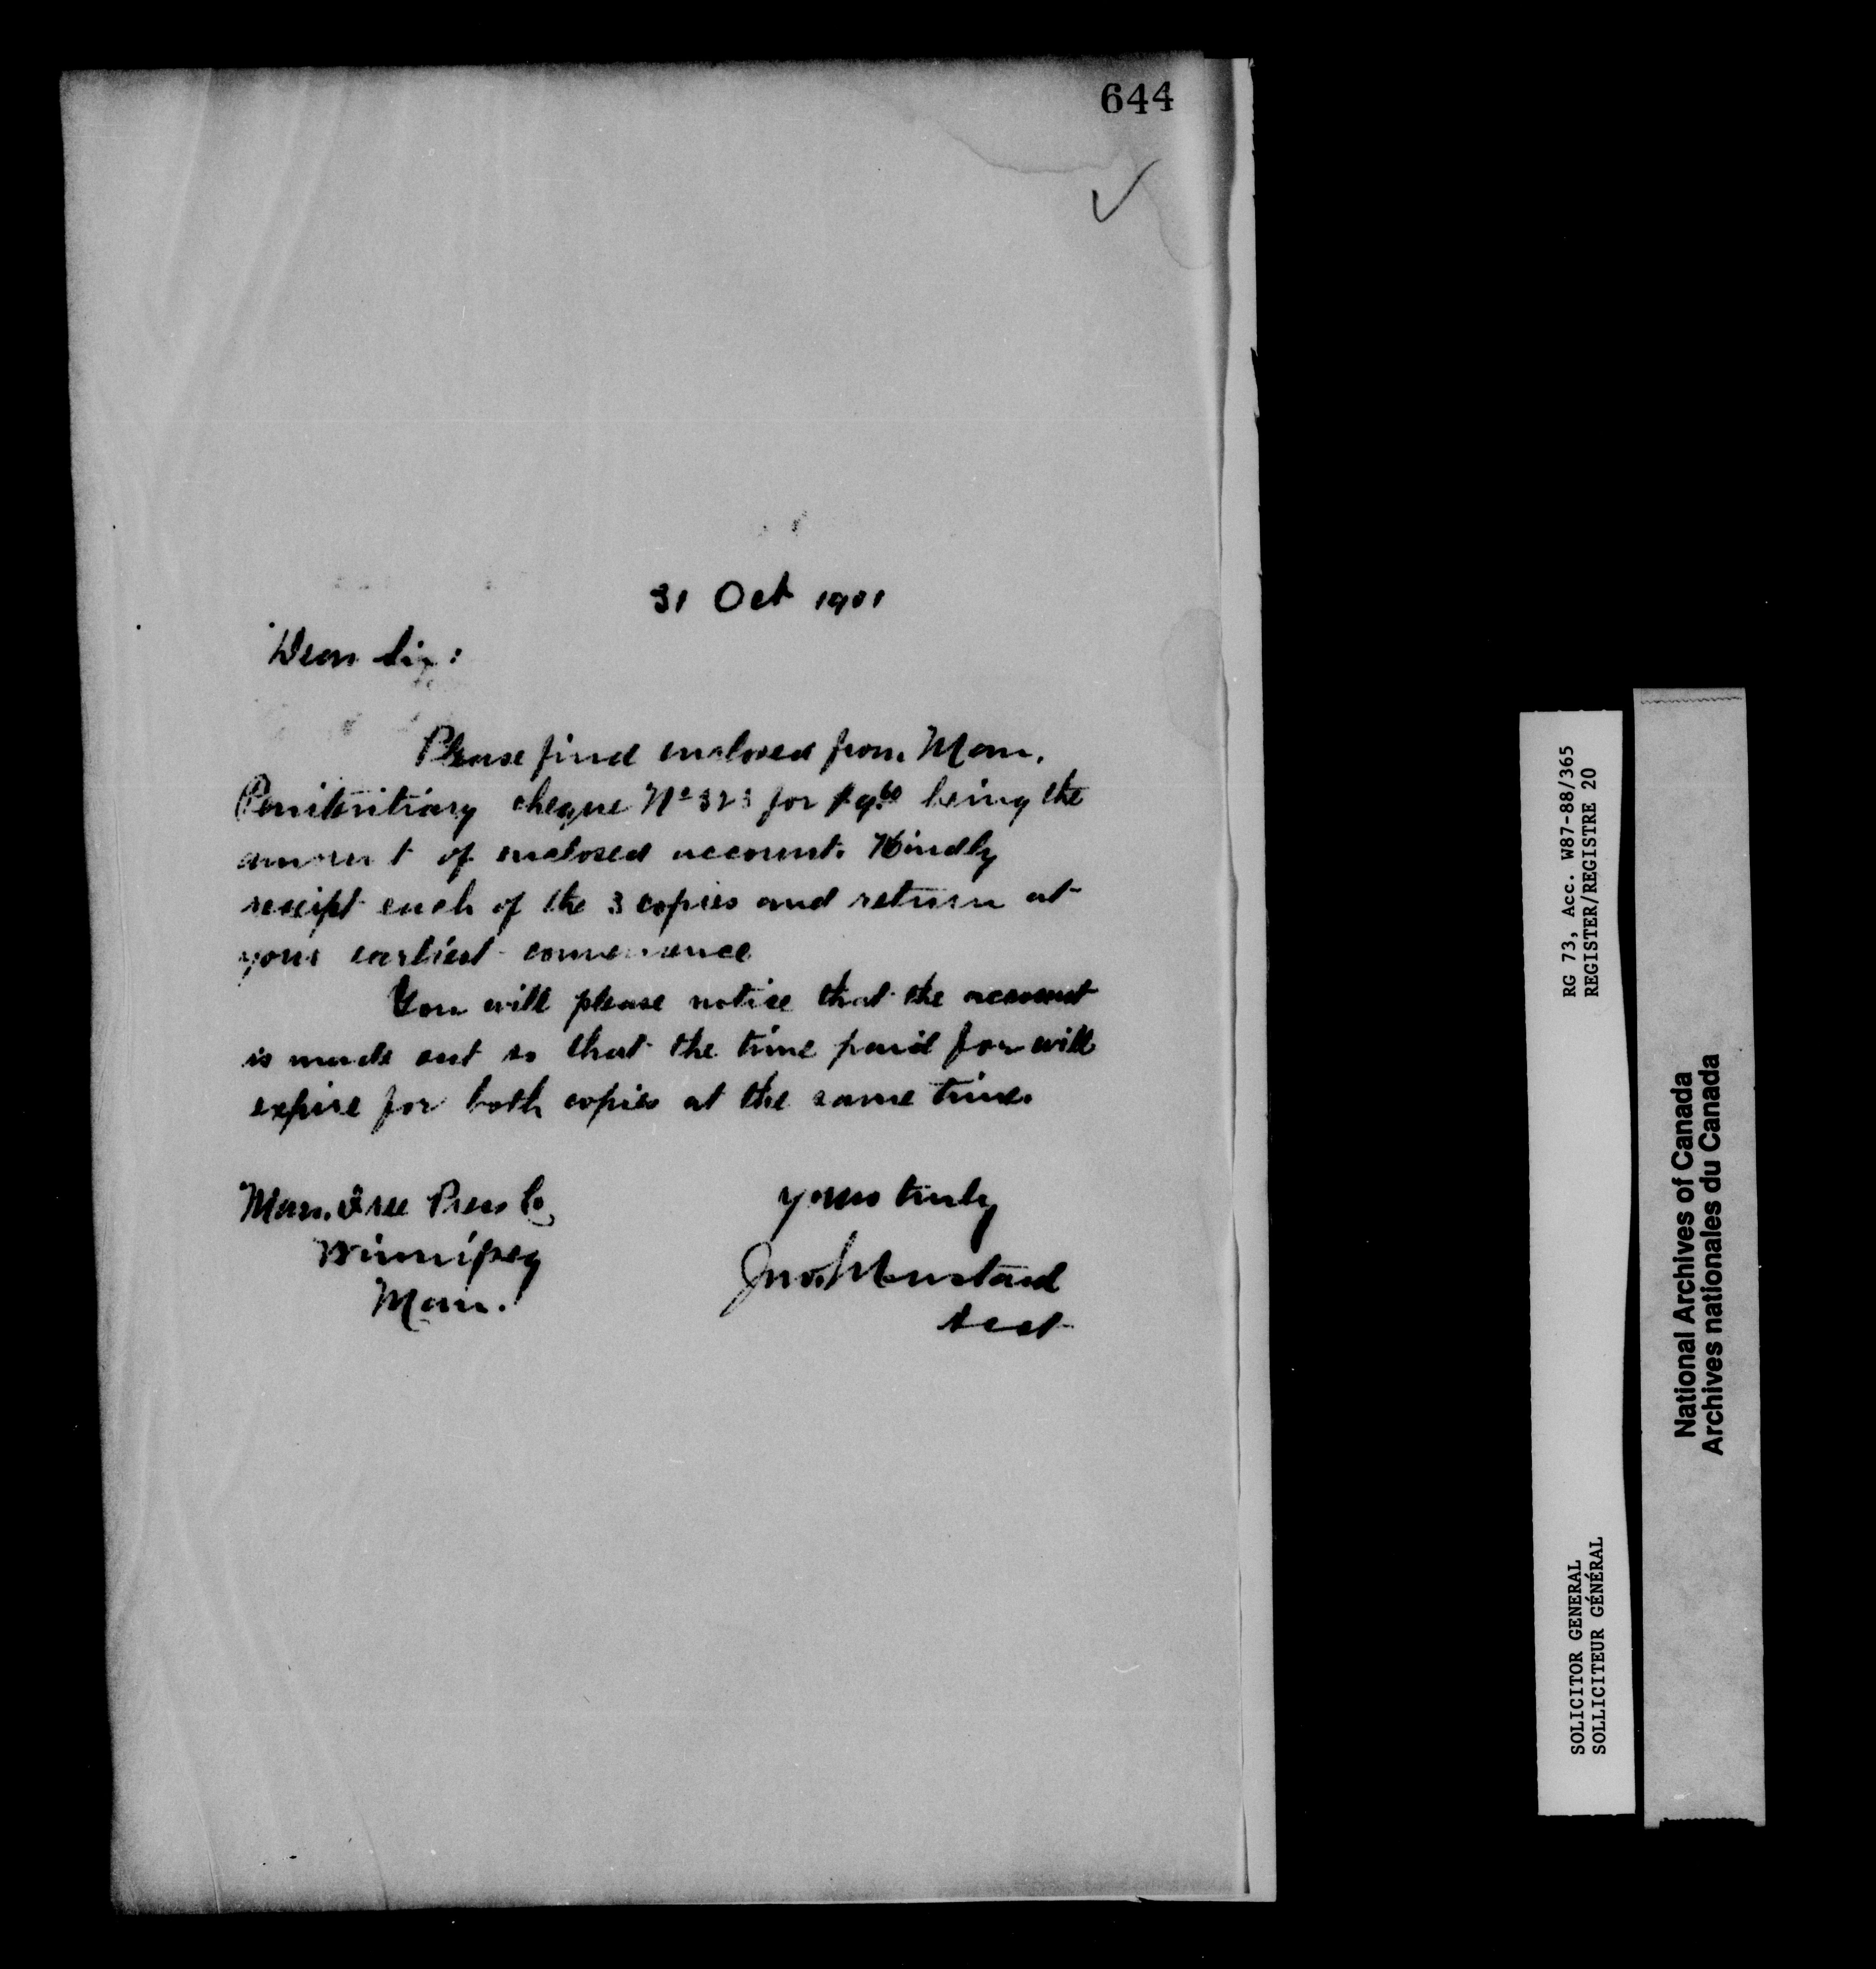 644
31 Oct 1901
Dear Sir:
Please find enclosed from Man.
Penitentiary cheque No 323 for $9.60 being the
amount of enclosed account. Kindly
receipt each of the 3 copies and return at
your earliest convenience
You will please notice that the account
is made out so that the time paid for will
expire for both copies at the same time.
Man. Free Press Co
Winnipeg
Man.
Yours truly
Jno. Mustard
Acct
RG 73, Acc. W87-88/365
REGISTER/REGISTRE 20
SOLICITOR GENERAL
SOLLICITEUR GÉNÉRAL
National Archives of Canada
Archives nationales du Canada